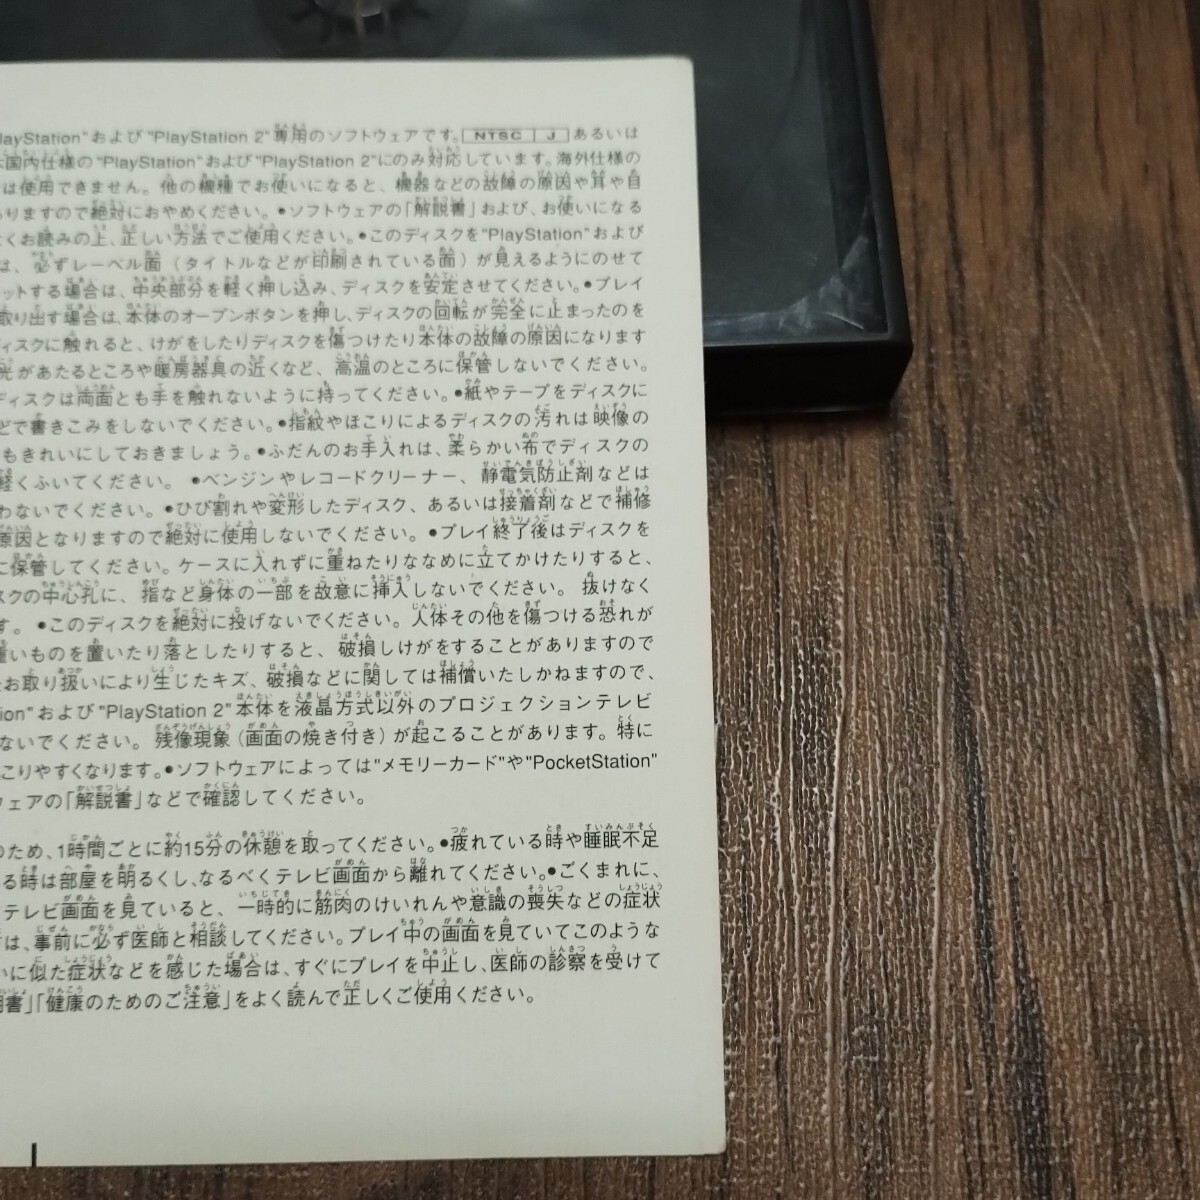 layStation"および"PlayStation 2"専用のソフトウェアです。 NTSC J あるいは
国内仕様の"PlayStation"および"PlayStation 2"にのみ対応しています。海外仕様の
は使用できません。他の機種でお使いになると、機器などの故障の原因や耳や目
りますので絶対におやめください。●ソフトウェアの「解説書」および、お使いになる
くお読みの上、正しい方法でご使用ください。●このディスクを"PlayStation"および
は、必ずレーベル面(タイトルなどが印刷されている面)が見えるようにのせて
ットする場合は、中央部分を軽く押し込み、ディスクを安定させてください。●プレイ
取り出す場合は、本体のオープンボタンを押し、ディスクの回転が完全に止まったのを
ィスクに触れると、けがをしたりディスクを傷つけたり本体の故障の原因になります
光があたるところや暖房器具の近くなど、高温のところに保管しないでください。
ディスクは両面とも手を触れないように持ってください。●紙やテープをディスクに
どで書きこみをしないでください。●指紋やほこりによるディスクの汚れは映像の
もきれいにしておきましょう。●ふだんのお手入れは、柔らかい布でディスクの
軽くふいてください。●ベンジンやレコードクリーナー、静電気防止剤などは
わないでください。●ひび割れや変形したディスク、あるいは接着剤などで補修
原因となりますので絶対に使用しないでください。●プレイ終了後はディスクを
に保管してください。ケースに入れずに重ねたりななめに立てかけたりすると、
スクの中心孔に、指など身体の一部を故意に挿入しないでください。抜けなく
す。●このディスクを絶対に投げないでください。人体その他を傷つける恐れが
重いものを置いたり落としたりすると、破損しけがをすることがありますので
お取り扱いにより生じたキズ、破損などに関しては補償いたしかねますので、
ion"および"PlayStation 2"本体を液晶方式以外のプロジェクションテレビ
ないでください。残像現象(画面の焼き付き)が起こることがあります。特に
こりやすくなります。●ソフトウェアによっては"メモリーカード"や"PocketStation"
ウェアの「解説書」などで確認してください。
のため、1時間ごとに約15分の休憩を取ってください。●疲れている時や睡眠不足
る時は部屋を明るくし、なるべくテレビ画面から離れてください。●ごくまれに、
テレビ画面を見ていると、一時的に筋肉のけいれんや意識の喪失などの症状
は、事前に必ず医師と相談してください。プレイ中の画面を見ていてこのような
いに似た症状などを感じた場合は、すぐにプレイを中止し、医師の診察を受けて
明書」「健康のためのご注意」をよく読んで正しくご使用ください。